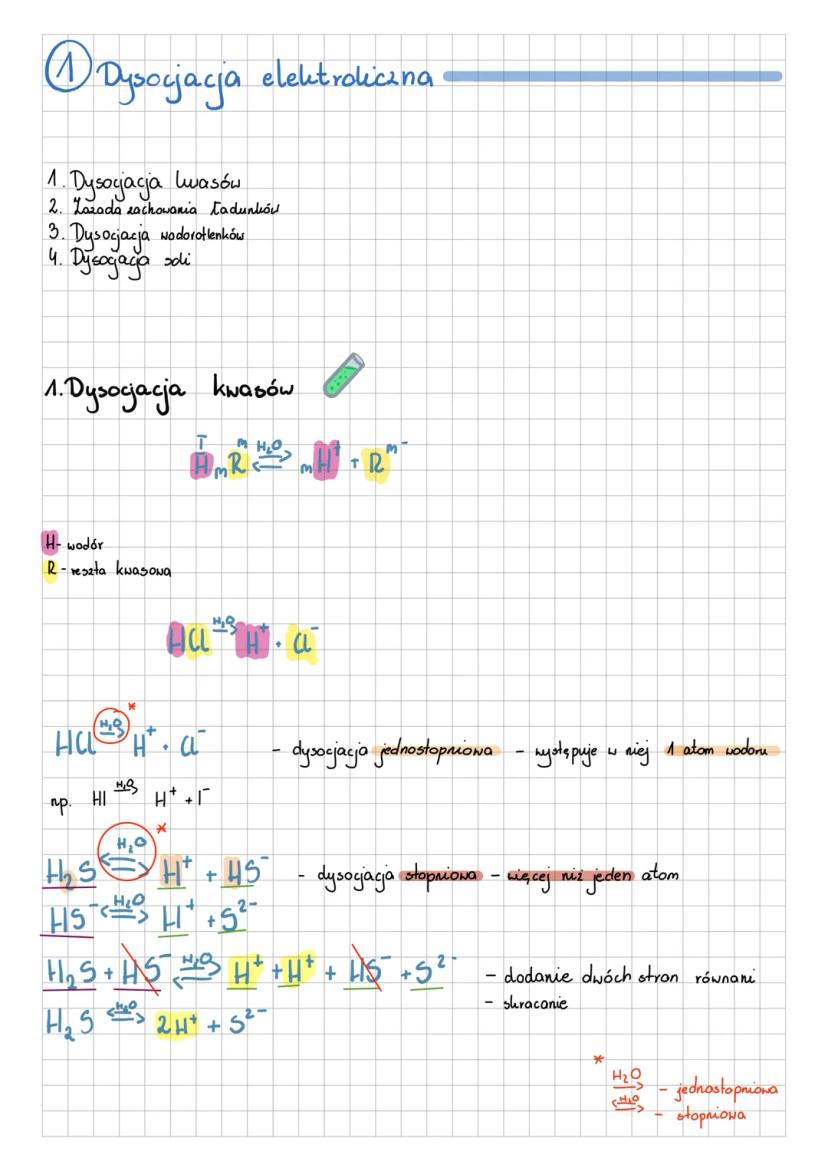 1 Dysocjacja elektroliczna
1. Dysocjacja kwasów
2. Zasada zachowania ładunków
3. Dysocjacja wodorotlenków
4. Dysocjacja soli
1. Dysocjacja kwasów
H̄ᴵₘRᵐ ⇄(H₂O) mH⁺ + Rᵐ⁻
H - wodór
R - reszta kwasowa
HCl →(H₂O) H⁺ + Cl⁻
HCl →(H₂O)* H⁺ + Cl⁻ - dysocjacja jednostopniowa - występuje w niej 1 atom wodoru
np. HI →(H₂O) H⁺ + I⁻
H₂S ⇄(H₂O)* H⁺ + HS⁻ - dysocjacja stopniowa - więcej niż jeden atom
HS⁻ ⇄(H₂O) H⁺ + S²⁻
H₂S + HS⁻ ⇄(H₂O) H⁺ + H⁺ + HS⁻ + S²⁻ - dodanie dwóch stron równani
- skracanie
H₂S ⇄(H₂O) 2H⁺ + S²⁻
*
→(H₂O) - jednostopniowa
⇄(H₂O) - stopniowa